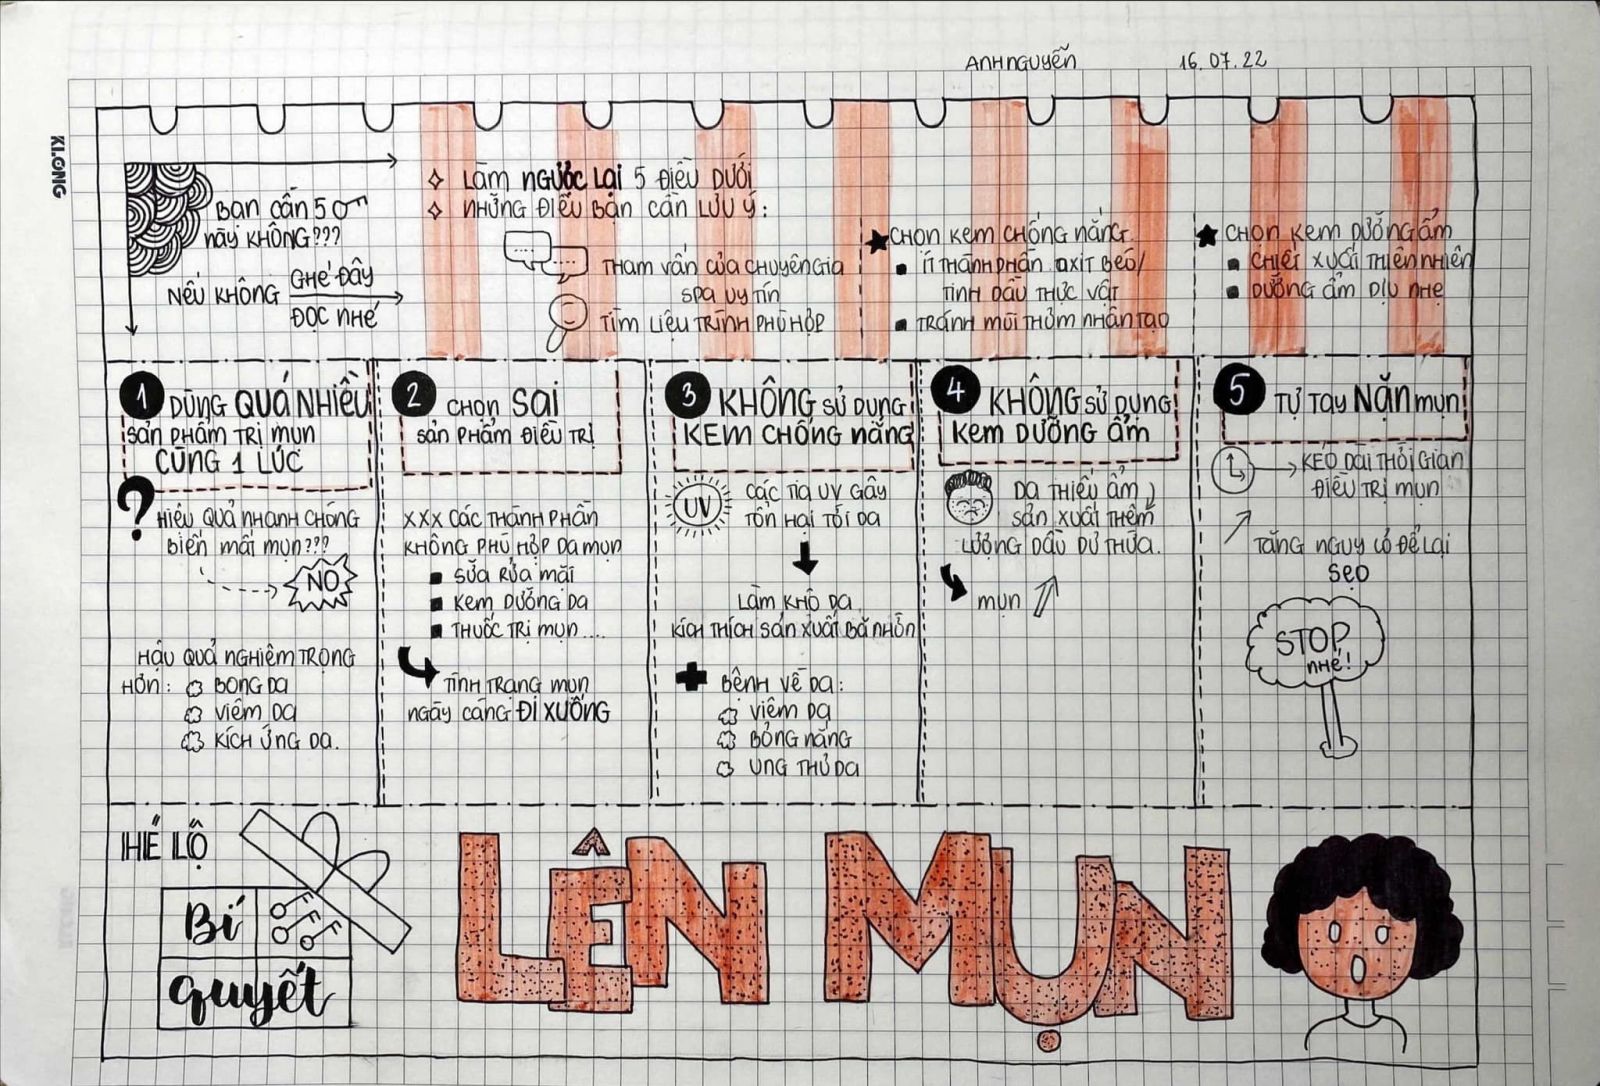 ANH NGUYỄN 16.07.22
KLONG
BẠN CẦN 5
NÀY KHÔNG???
NẾU KHÔNG GHÉ ĐÂY
ĐỌC NHÉ
LÀM NGƯỢC LẠI 5 ĐIỀU DƯỚI
NHỮNG ĐIỀU BẠN CẦN LƯU Ý:
THAM VẤN CỦA CHUYÊN GIA
SPA UY TÍN
TÌM LIỆU TRÌNH PHÙ HỢP
CHỌN KEM CHỐNG NẮNG
ÍT THÀNH PHẦN AXIT BÉO/
TINH DẦU THỰC VẬT
TRÁNH MÙI THƠM NHÂN TẠO
CHỌN KEM DƯỠNG ẨM
CHIẾT XUẤT THIÊN NHIÊN
DƯỠNG ẨM DỊU NHẸ
1 DÙNG QUÁ NHIỀU
SẢN PHẨM TRỊ MỤN
CÙNG 1 LÚC
? HIỆU QUẢ NHANH CHÓNG
BIẾN MẤT MỤN???
NO
HẬU QUẢ NGHIÊM TRỌNG
HƠN: BONG DA
VIÊM DA
KÍCH ỨNG DA.
2 CHỌN SAI
SẢN PHẨM ĐIỀU TRỊ
XXX CÁC THÀNH PHẦN
KHÔNG PHÙ HỢP DA MỤN
SỮA RỬA MẶT
KEM DƯỠNG DA
THUỐC TRỊ MỤN....
TÌNH TRẠNG MỤN
NGÀY CÀNG ĐI XUỐNG
3 KHÔNG SỬ DỤNG
KEM CHỐNG NẮNG
UV
CÁC TIA UV GÂY
TỔN HẠI TỚI DA
LÀM KHÔ DA
KÍCH THÍCH SẢN XUẤT BÃ NHỜN
BỆNH VỀ DA:
VIÊM DA
BỎNG NẮNG
UNG THƯ DA
4 KHÔNG SỬ DỤNG
KEM DƯỠNG ẨM
DA THIẾU ẨM
SẢN XUẤT THÊM
LƯỢNG DẦU DƯ THỪA.
MỤN
5 TỰ TAY NẶN MỤN
KÉO DÀI THỜI GIAN
ĐIỀU TRỊ MỤN
TĂNG NGUY CƠ ĐỂ LẠI
SẸO
STOP
NHÉ!
HÉ LỘ
Bí
quyết
LÊN MỤN